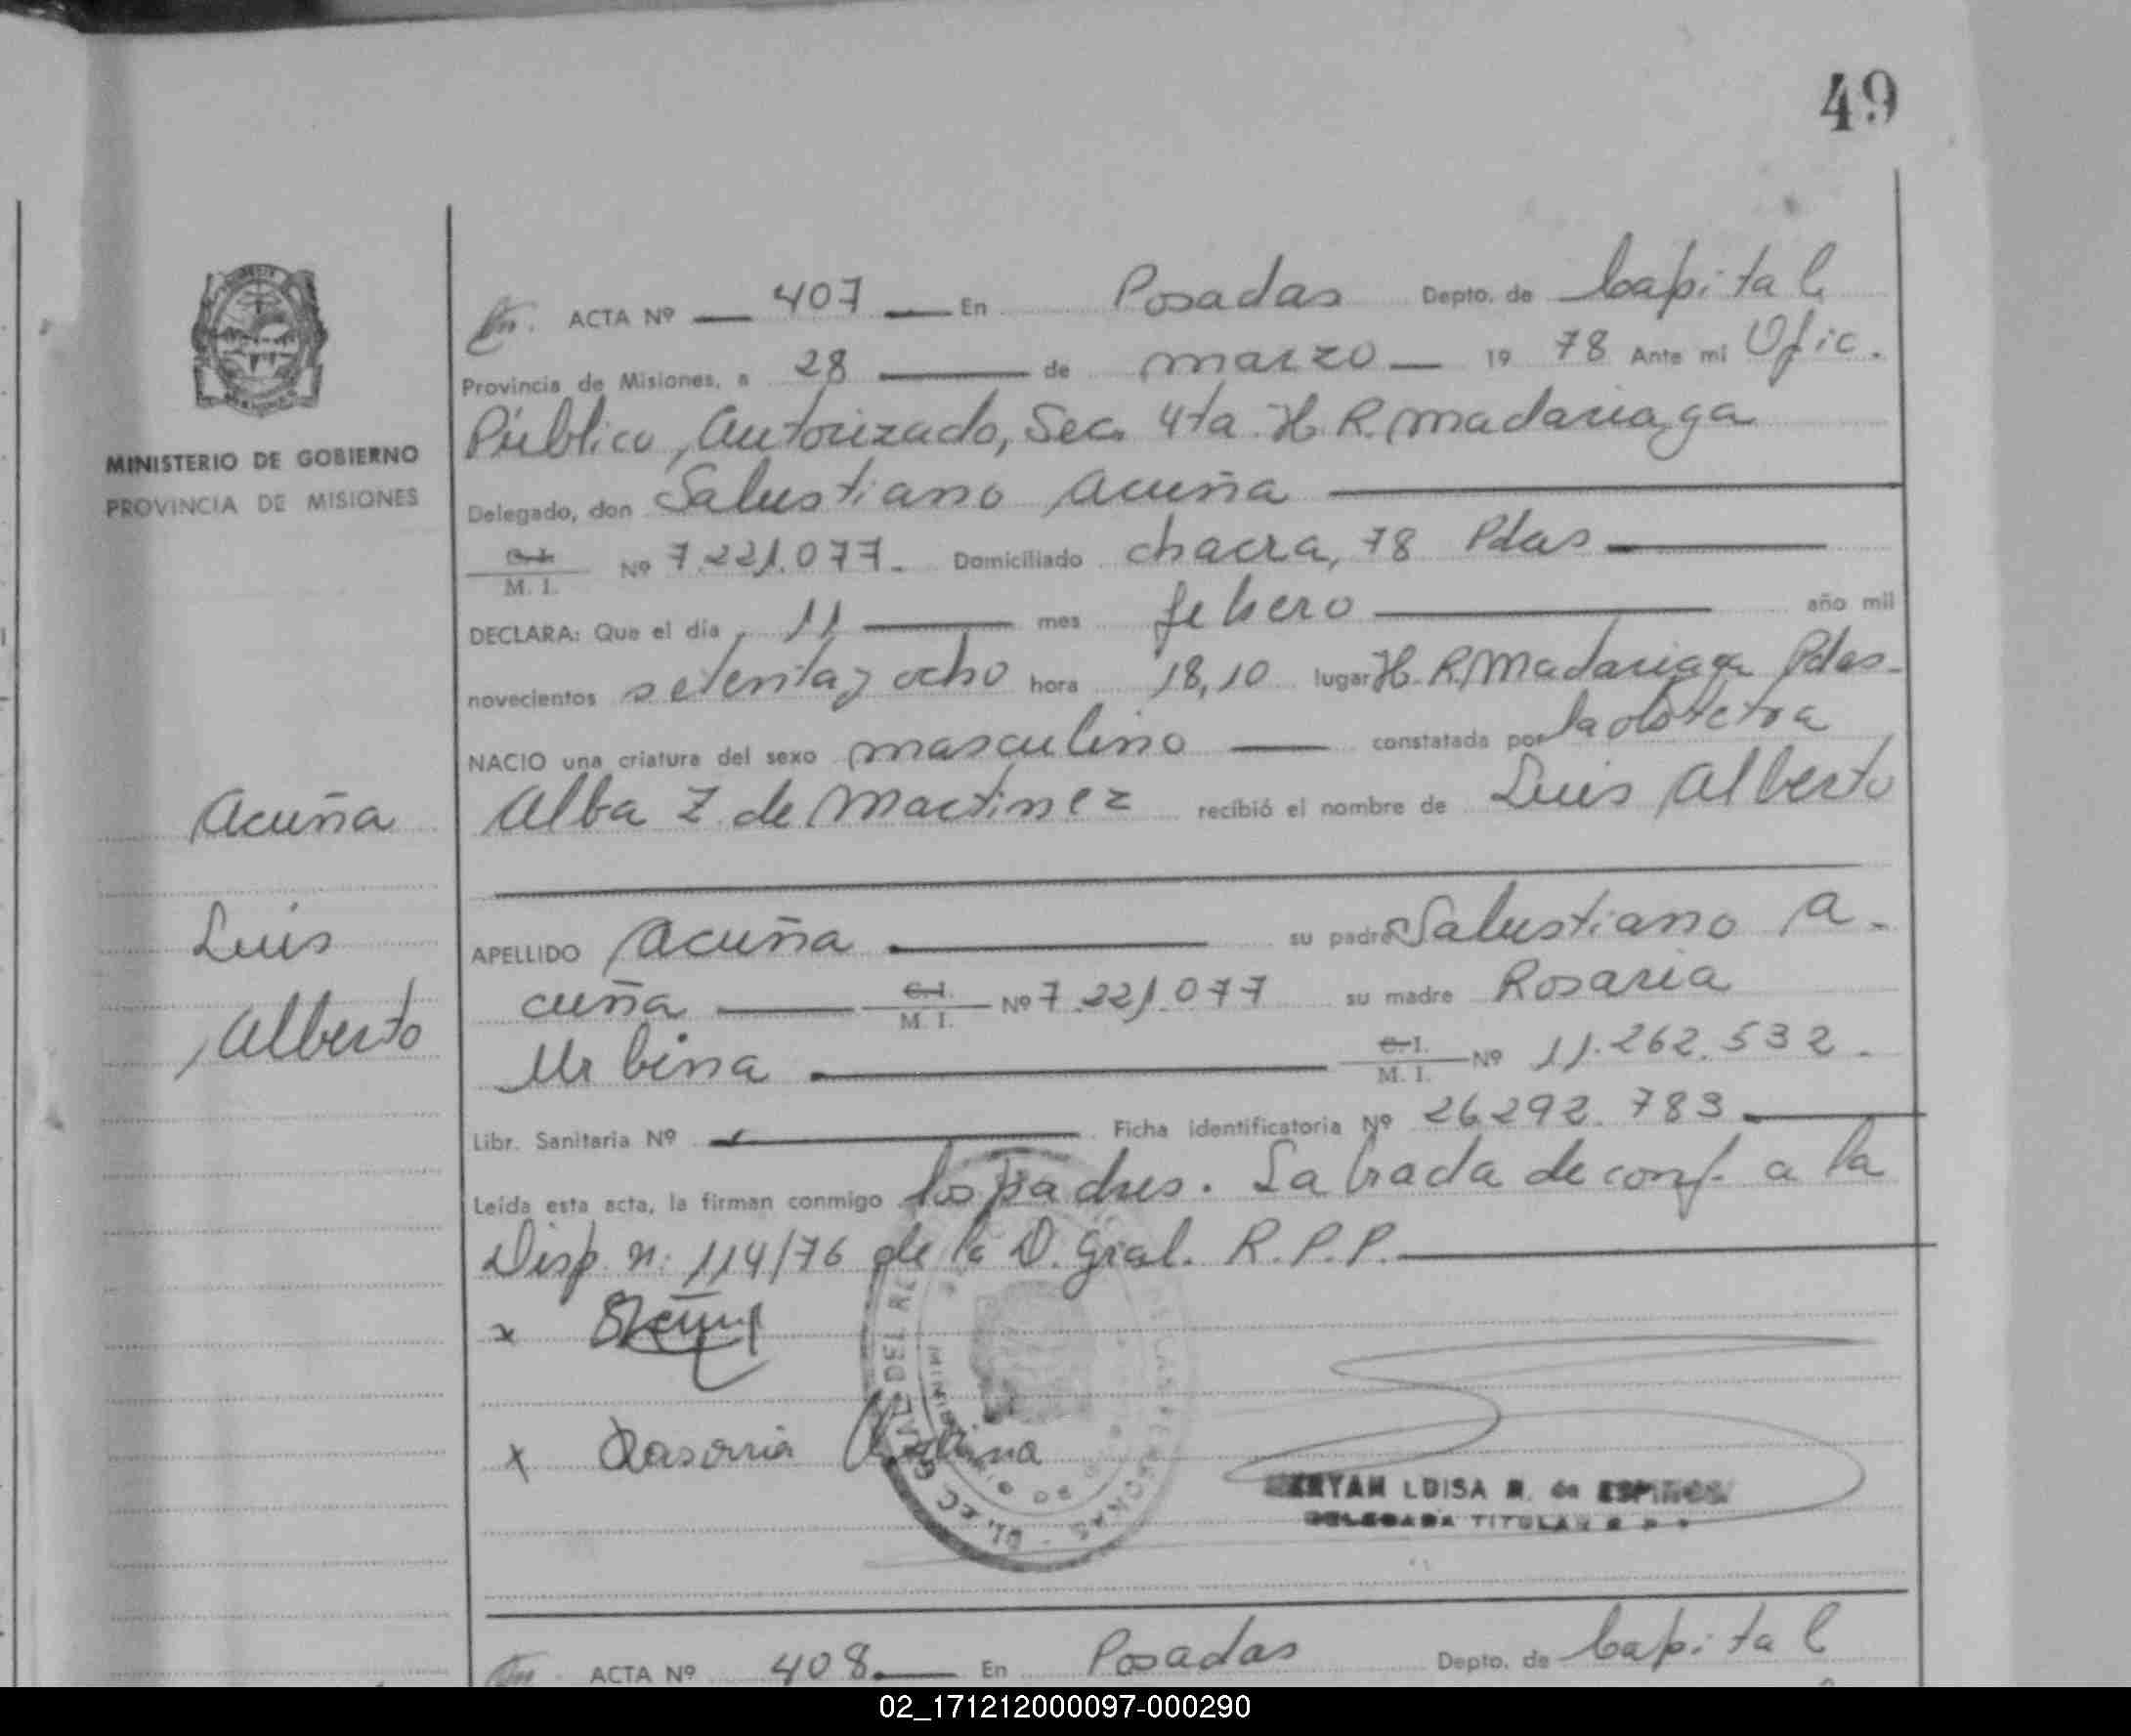 49
ACTA Nº 407 En Posadas Depto. de Capital
Provincia de Misiones, a 28 de marzo 19 78 Ante mi Ofic.
Público, Autorizado, Sec. 4ta. H. R. Madariaga
MINISTERIO DE GOBIERNO
PROVINCIA DE MISIONES
Delegado, don Salustiano Acuña
C.I. M. I. Nº 7.221.077. Domiciliado chacra, 78 Pdas
DECLARA: Que el día 11 mes febero año mil
novecientos setenta y ocho hora 18,10 lugar H. R. Madariaga Pdas-
NACIO una criatura del sexo masculino constatada por la obstetra
Alba Z. de Martinez recibió el nombre de Luis Alberto
Acuña
Luis
Alberto
APELLIDO Acuña su padre Salustiano A-
cuña C.I. M. I. Nº 7.221.077 su madre Rosaria
Urbina C.I. M. I. Nº 11.262.532.
Libr. Sanitaria Nº Ficha identificatoria Nº 26292.783
Leída esta acta, la firman conmigo los padres. Labrada de conf. a la
Disp. n: 114/76 de la D. Gral. R.P.P.
x
x Rasonia Urbina
LUISA R. de ESPINOSA
DELEGADA TITULAR R P P
ACTA Nº 408 En Posadas Depto. de Capital
02_171212000097-000290